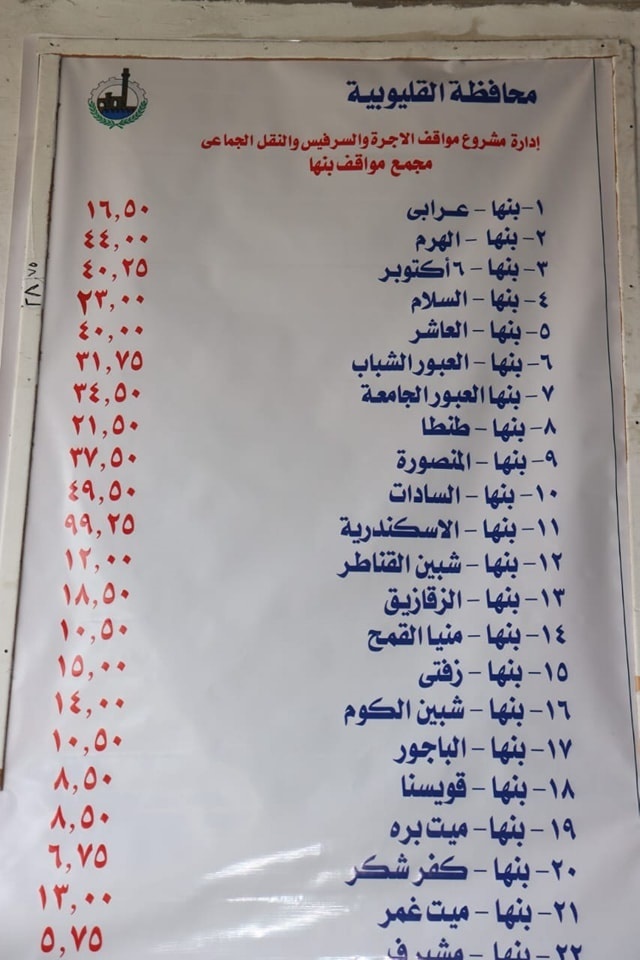 محافظة القليوبية
إدارة مشروع مواقف الاجرة والسرفيس والنقل الجماعى
مجمع مواقف بنها
١- بنها - عرابى ١٦,٥٠
٢- بنها - الهرم ٤٤,٠٠
٣- بنها - ٦ أكتوبر ٤٠,٢٥
٤- بنها - السلام ٢٣,٠٠
٥- بنها - العاشر ٤٠,٠٠
٦- بنها - العبور الشباب ٣١,٧٥
٧- بنها العبور الجامعة ٣٤,٥٠
٨- بنها - طنطا ٢١,٥٠
٩- بنها - المنصورة ٣٧,٥٠
١٠- بنها - السادات ٤٩,٥٠
١١- بنها - الاسكندرية ٩٩,٢٥
١٢- بنها - شبين القناطر ١٢,٠٠
١٣- بنها - الزقازيق ١٨,٥٠
١٤- بنها - منيا القمح ١٠,٥٠
١٥- بنها - زفتى ١٥,٠٠
١٦- بنها - شبين الكوم ١٤,٠٠
١٧- بنها - الباجور ١٠,٥٠
١٨- بنها - قويسنا ٨,٥٠
١٩- بنها - ميت بره ٨,٥٠
٢٠- بنها - كفر شكر ٦,٧٥
٢١- بنها - ميت غمر ١٣,٠٠
٢٢- بنها - مشيرف ٥,٧٥